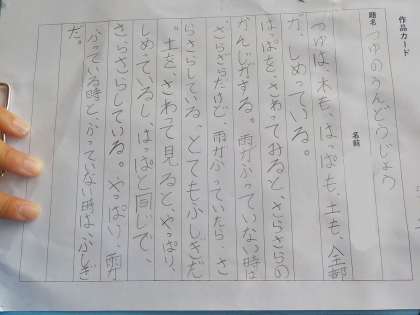 作品カード
題名
つゆのうんどうじょう
名前
つゆは、木も、はっぱも、土も、全部
が、しめっている。
はっぱを、さわってみると、さらさらの
かんじがする。雨がふっていない時は
ざらざらだけど、雨がふっていたら、さ
らさらしている、とてもふしぎだ
。土を、さわって見ると、やっぱり、
しめっているし、はっぱと同じで、
さらさらしている。やっぱり、雨が
ふっている時と、ふっていない時は、ふしぎ
だ。